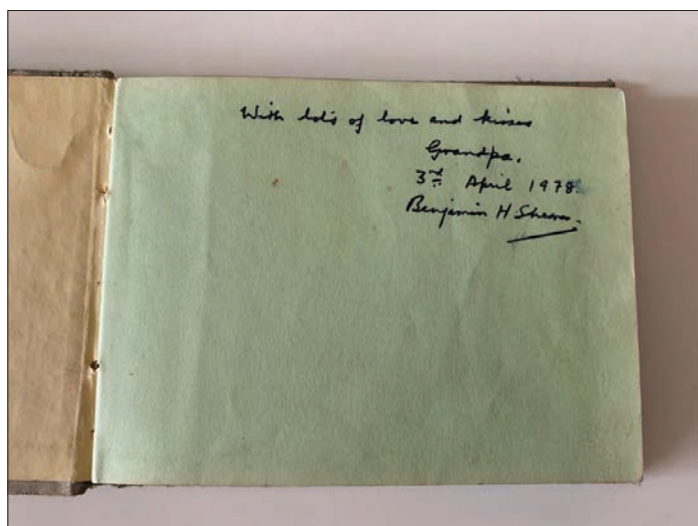 With lots of love and kisses
Grandpa.
3rd April 1978.
Benjamin H Sheares.